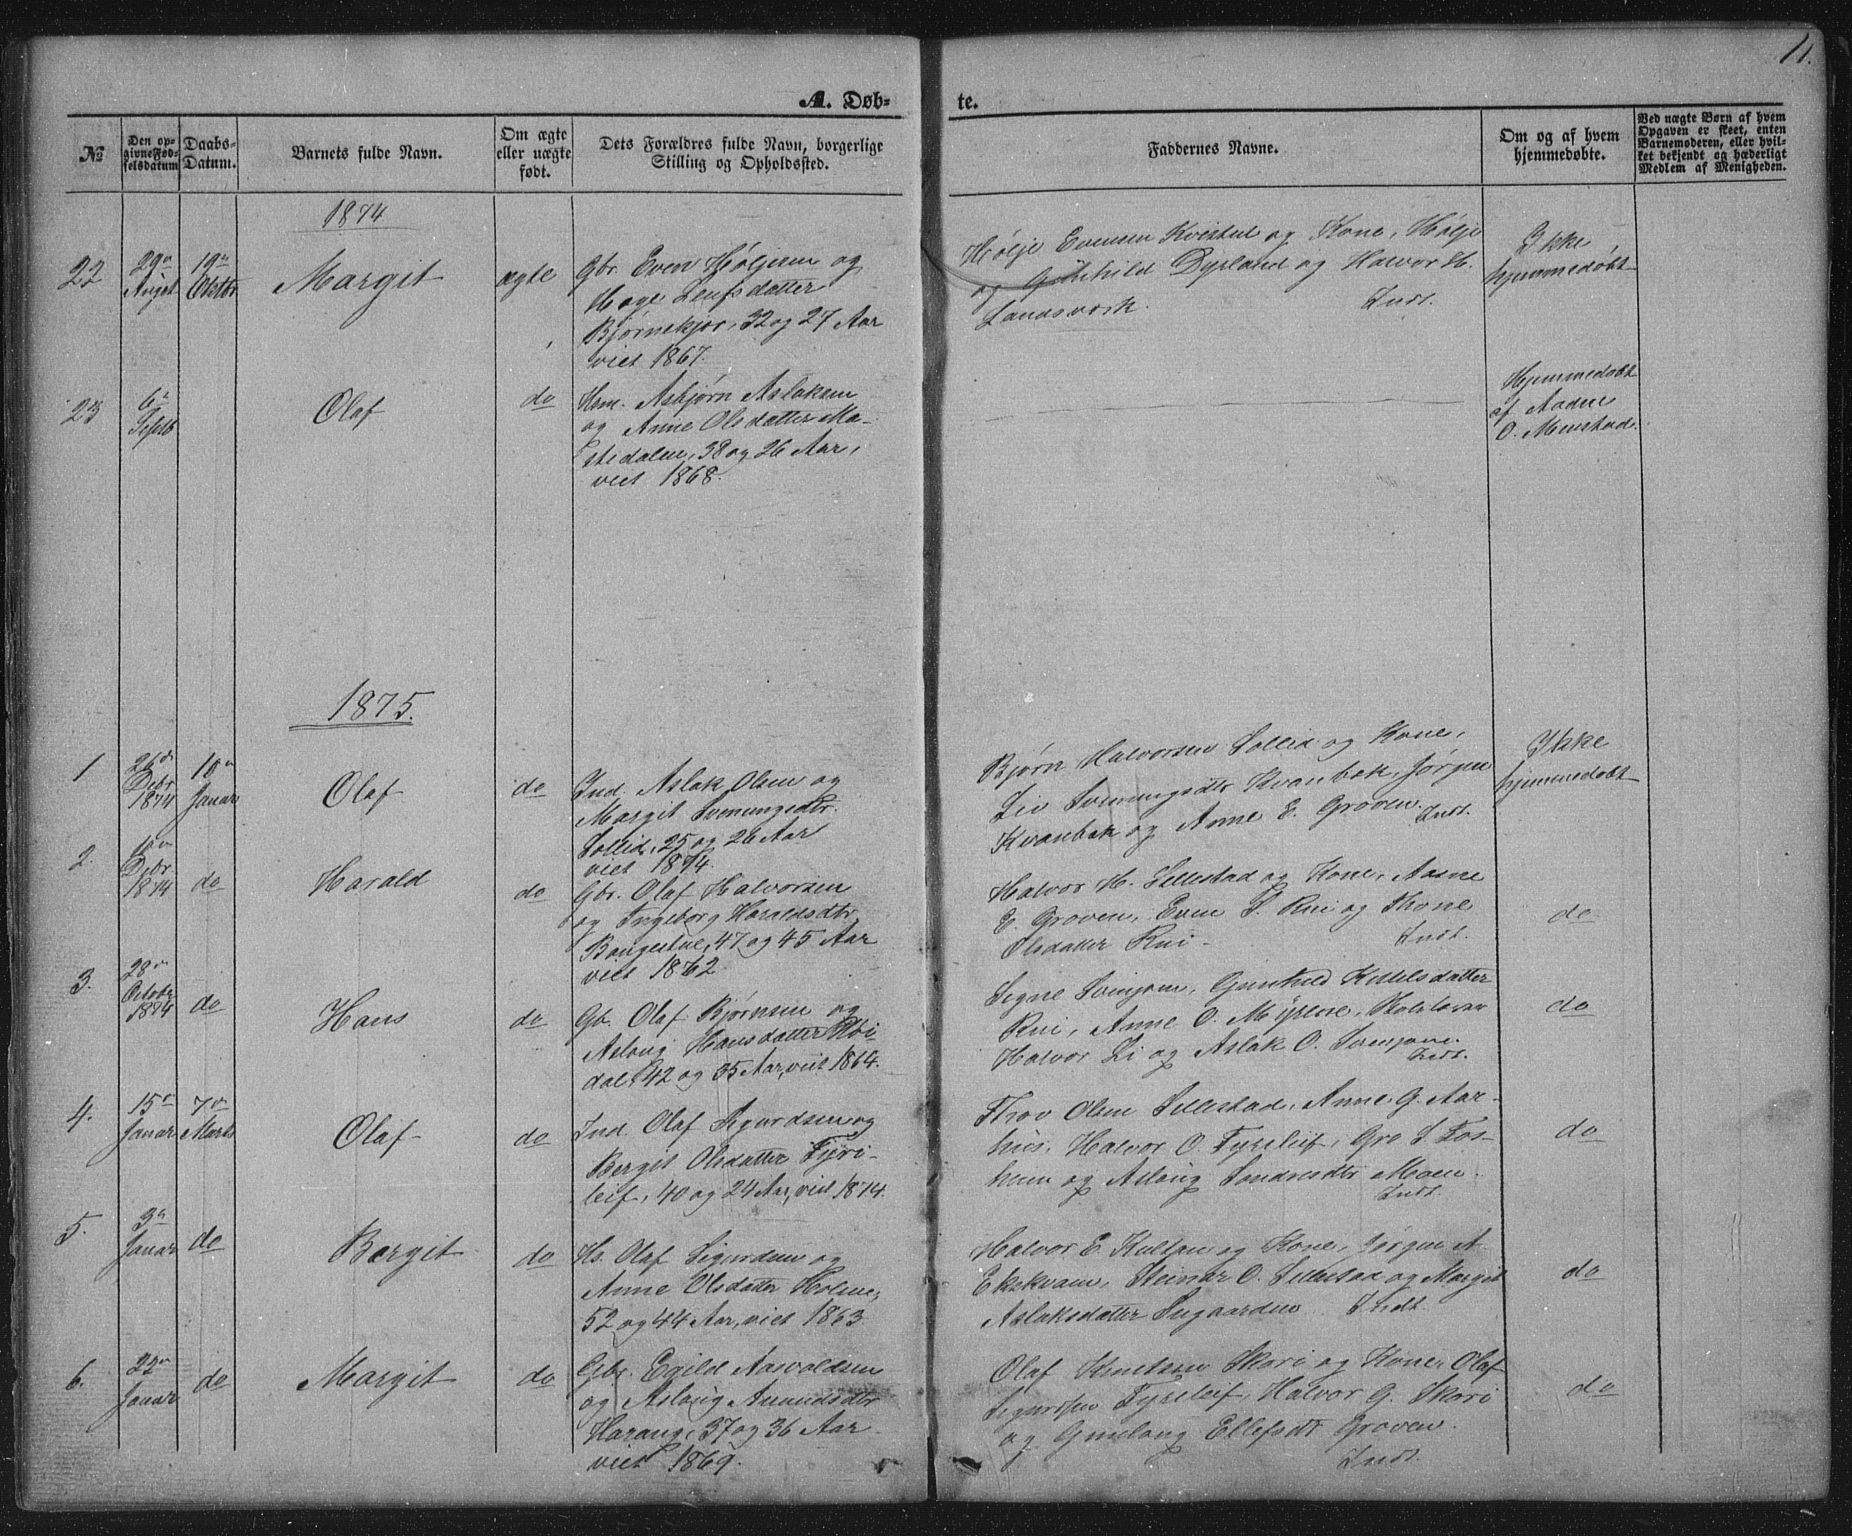 11.
A. Døb-
te.
№
Den op-
givne Fød-
selsdatum
Daabs-
Datum.
Barnets fulde Navn.
Om ægte
eller uægte
født.
Dets Forældres fulde Navn, borgerlige
Stilling og Opholdssted.
Faddernes Navne.
Om og af hvem
hjemmedøbte.
Ved uægte Børn af hvem
Opgaven er skeet, enten
Barnemoderen, eller hvil-
ket bekjendt og hæderligt
Medlem af Menigheden.
1874
22
29de
August
19de
Margit
ægte
Gbr. Even Høljesen og
Hage Leufsdatter
Bjørnekjær, 32 og 27 Aar
viet 1867.
Hølje Evensen Kvistul og Kone, Hølje
og Gunhild Dyrland og Halvor H.
Landsverk. Indt.
Ikke
hjemmedøbt
23
6te
Septb
Olaf
do
Hsm. Asbjørn Aslaksen
og Anne Olsdatter Ma-
stedalen, 38 og 26 Aar,
viet 1868.
Hjemmedøbt
af Aaden
O. Menstad.
1875.
1
26de
Debr
1874
10de
Januar
Olaf
do
Ind. Aslak Olsen og
Margit Sveinungsdtr.
Sollid, 25 og 26 Aar
viet 1874.
Bjørn Halvorsen Sollid og Kone,
Liv Sveinungsdtr Kvanbek, Jørgen
Kvanbek og Anne E. Groven. Indt.
Ikke
hjemmedøbt
2.
10de
Debr
1874
do
Harald
do
Gbr. Olaf Halvorsen
og Ingeborg Haraldsdtr
Bangestue, 47 og 45 Aar
viet 1862.
Halvor H. Lillestad og Kone, Aasne
E. Groven, Even S. Rui og Thone
Olsdatter Rui. Indt.
do
3.
28de
October
1874
do
Hans
do
Gb. Olaf Bjørnsen og
Aslaug Hansdatter
dal, 42 og 35 Aar, viet 1864.
Signe Svinjom, Gunhild Kittelsdatter
Rui, Anne O. Mysene,
Halvor Li og Aslak O. Svenjom.
Indt.
do
4.
15de
Januar
7de
Marts
Olaf
do
Ind. Olaf Sgurdsen og
Bergit Olsdatter Fyri-
leif, 40 og 24 Aar, viet 1874.
Thov Olsen Lillestad, Anne G. Aar-
hus, Halvor O. Fyreleif, Gro S. Fos-
heim og Aslaug Sondresdtr Moen.
Indt.
do
5.
3de
Januar
do
Bergit
do
Hs. Olaf Sigurdsen og
Anne Olsdatter Holene,
52 og 44 Aar, viet 1863.
Halvor E. Kultan og Kone, Jørgen A.
Ekskvam, Steinar O. Lillestad og Margit
Aslaksdatter Sugaarden Indt.
do
6.
22de
Januar
do
Margit
do
Gbr. Egild Aasvaldsen
og Aslaug Amundsdtr
Harang, 37 og 36 Aar
viet 1869.
Olaf Knutsen Skori og Kone, Olaf
Sigurdsen Fyreleif, Halvor G. Skori
og Gunlaug Ellefsdt Groven.
Indt.
do